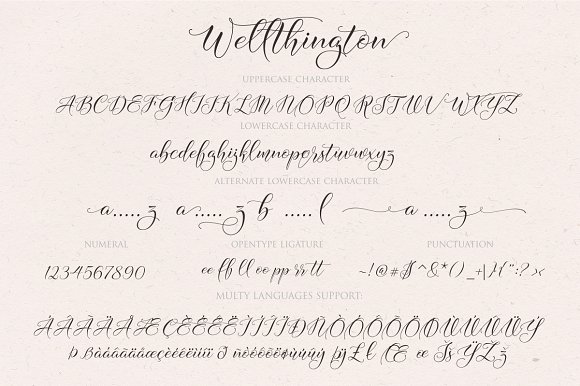 Wellthington
UPPERCASE CHARACTER
ABCDEFGHIJKLMNOPQRSTUVWXYZ
LOWERCASE CHARACTER
abcdefghijklmnopqrstuvwxyz
ALTERNATE LOWERCASE CHARACTER
a.....z a.....z b.....l a.....z
NUMERAL OPENTYPE LIGATURE PUNCTUATION
1234567890 ee ff ll oo pp rr tt ~!@#$^&*()_+|{}":?><
MULTY LANGUAGES SUPPORT: